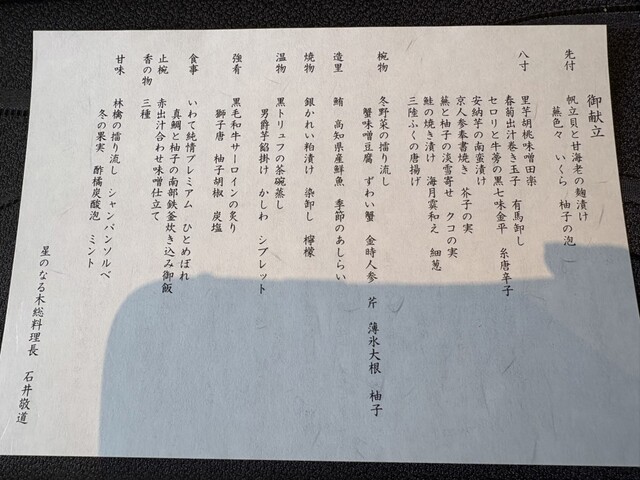 御献立
先付 帆立貝と甘海老の麹漬け
蕪色々 いくら 柚子の泡
八寸 里芋胡桃味噌田楽
春菊出汁巻き玉子 有馬卸し
セロリと牛蒡の黒七味金平 糸唐辛子
安納芋の南蛮漬け
京人参奉書焼き 芥子の実
蕪と柚子の淡雪寄せ クコの実
鮭の焼き漬け 海月霙和え 細葱
三陸ふくの唐揚げ
椀物 冬野菜の擂り流し
蟹味噌豆腐 ずわい蟹 金時人参 芹 薄氷大根 柚子
造里 鮪 高知県産鮮魚 季節のあしらい
焼物 銀かれい粕漬け 染卸し 檸檬
温物 黒トリュフの茶碗蒸し
男爵芋餡掛け かしわ シブレット
強肴 黒毛和牛サーロインの炙り
獅子唐 柚子胡椒 炭塩
食事 いわて純情プレミアム ひとめぼれ
真鯛と柚子の南部鉄釜炊き込み御飯
止椀 赤出汁合わせ味噌仕立て
香の物 三種
甘味 林檎の擂り流し シャンパンソルベ
冬の果実 酢橘炭酸泡 ミント
星のなる木総料理長 石井敬道